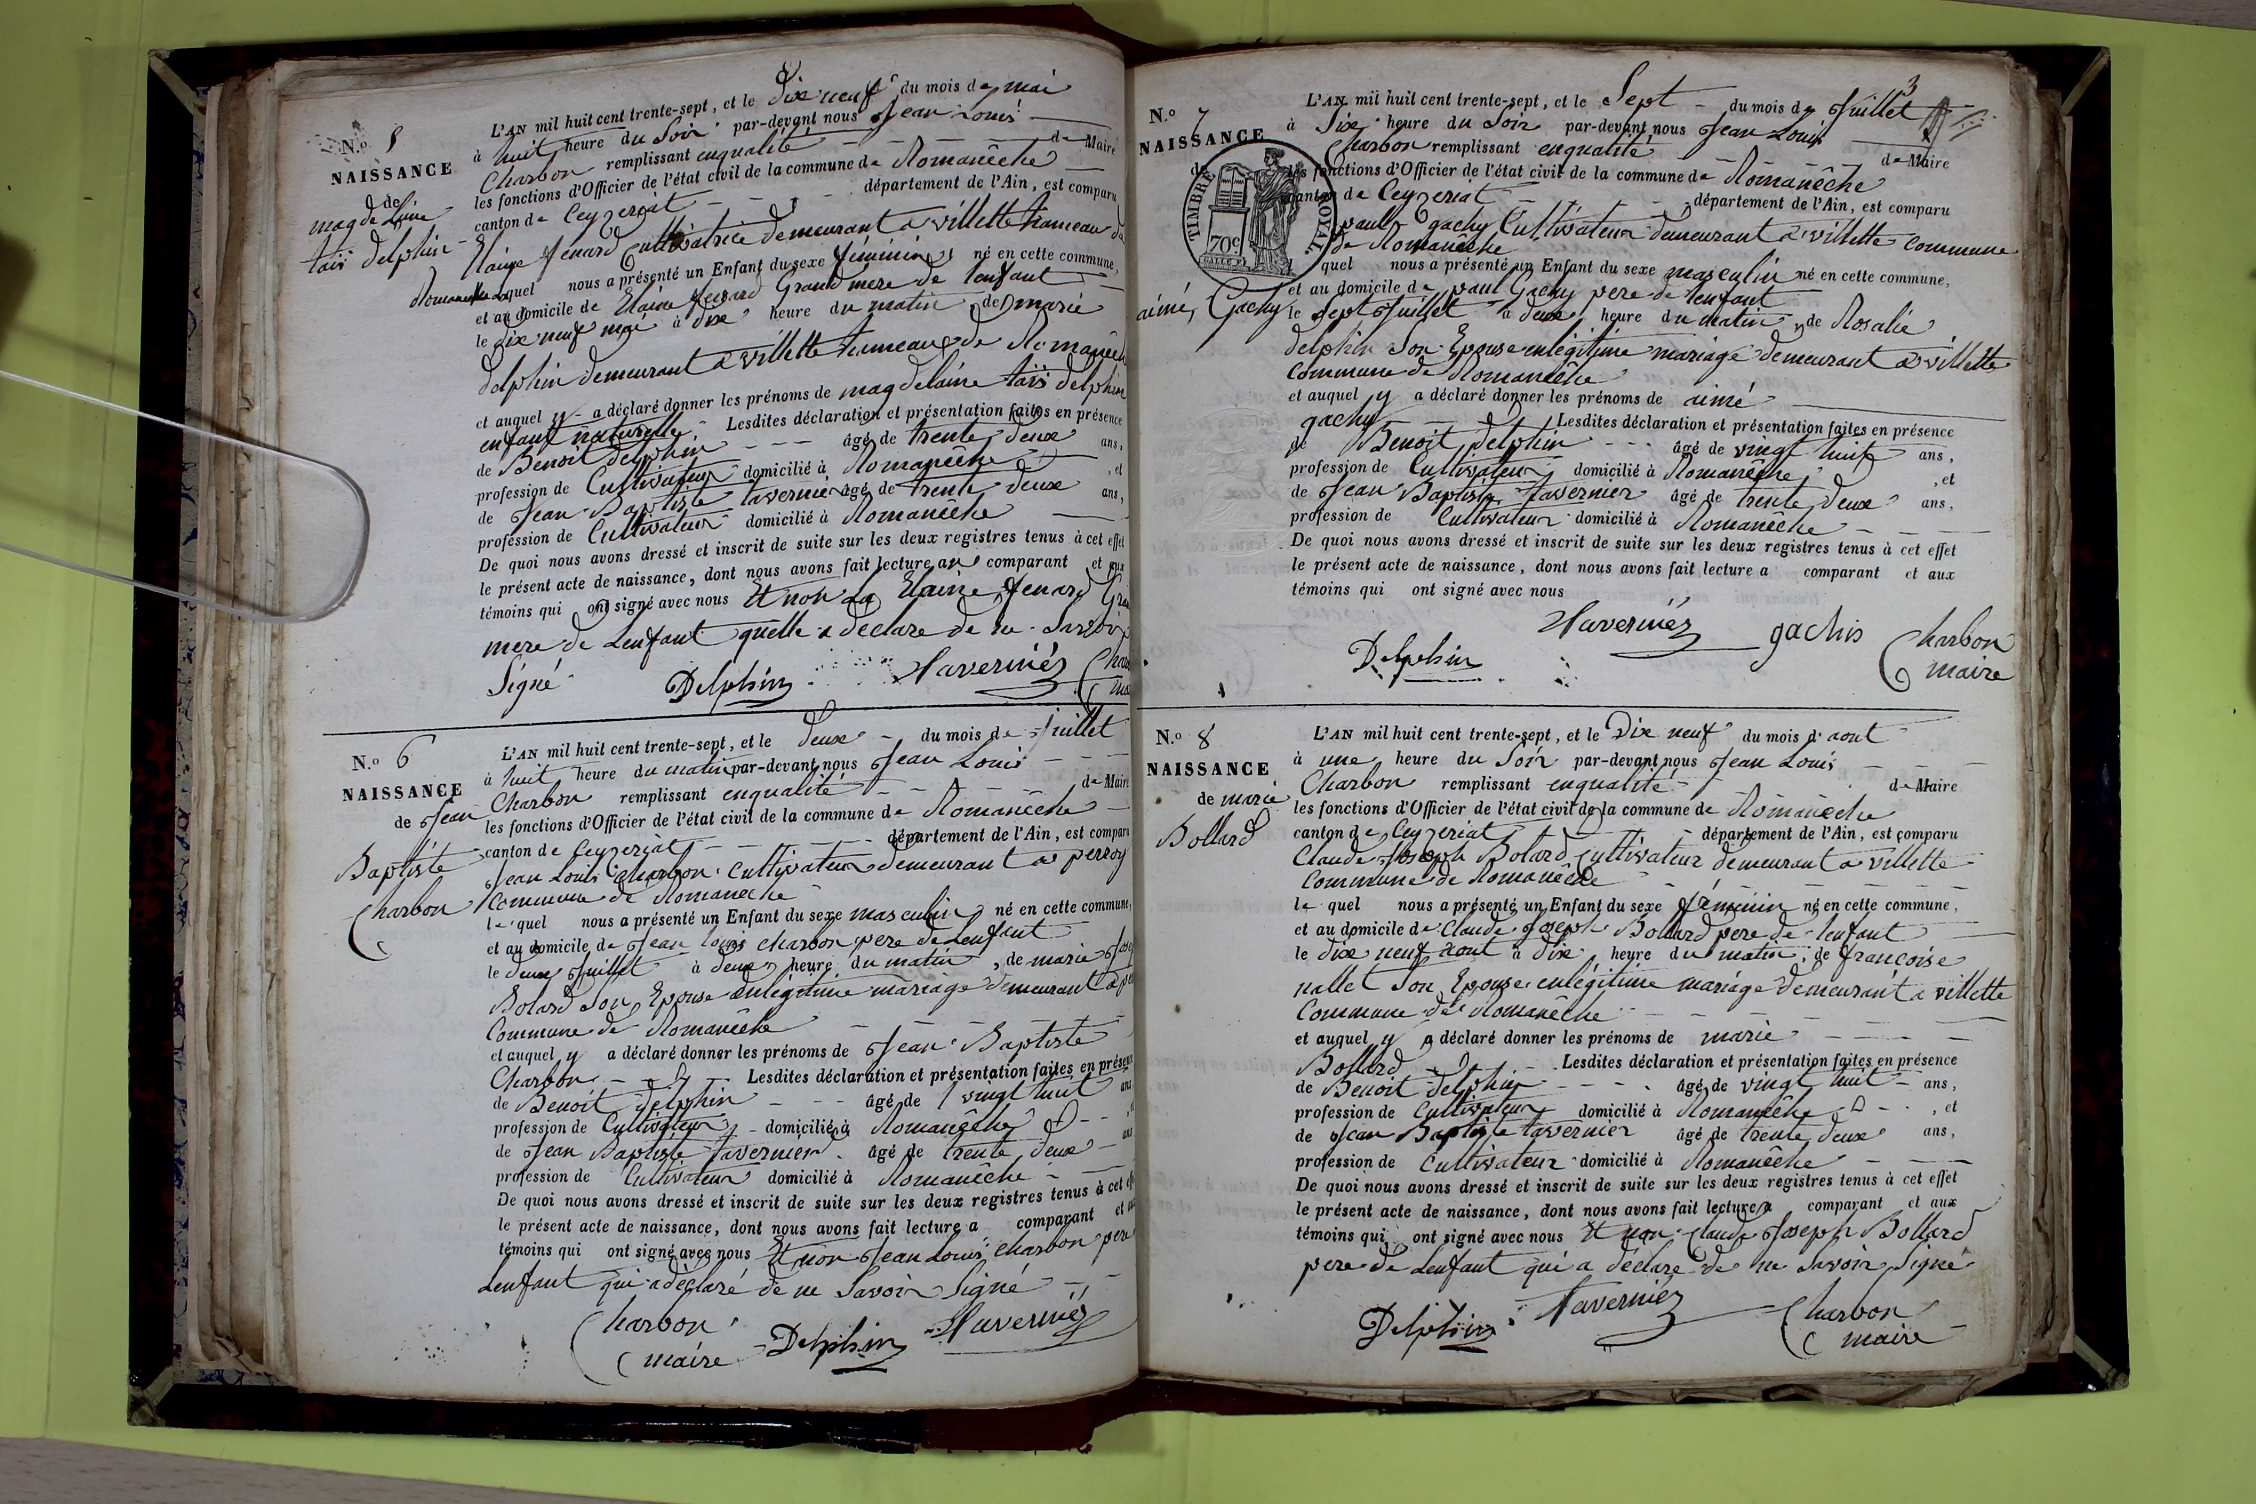 N.o 5
NAISSANCE
de
magdelaine
taïs delphin
L'AN mil huit cent trente-sept, et le Dix neuf du mois de mai
à huit heure du Soir par-devant nous Jean Louis
Charbon remplissant enqualité de Maire
les fonctions d'Officier de l'état civil de la commune de Romanêche
canton de Ceyzeriat département de l'Ain, est comparu
Elaine fenard Cultivatrice demeurant a villette hameau de
Romanêche laquel nous a présenté un Enfant du sexe féminin né en cette commune,
et au domicile de Elaine fenard Grand mere de lenfant
le dix neuf mai à dix heure du matin, de marie
delphin demeurant a villette hameau de Romanêche
et auquel y a déclaré donner les prénoms de magdelaine taïs delphin
enfant naturelle Lesdites déclaration et présentation faites en présence
de Benoit delphin âgé de trente deux ans,
profession de Cultivateur domicilié à Romanêche, et
de Jean Baptiste tavernier âgé de trente deux ans,
profession de Cultivateur domicilié à Romanêche
De quoi nous avons dressé et inscrit de suite sur les deux registres tenus à cet effet
le présent acte de naissance, dont nous avons fait lecture au comparant et aux
témoins qui ont signé avec nous Et non la Elaine fenard Gran
mere de Lenfant quelle a déclare de ne Savoir
Signé
Delphin Taverniér Char
ma
N.o 6
NAISSANCE
de Jean
Baptiste
Charbon
L'AN mil huit cent trente-sept, et le deux du mois de Juillet
à huit heure du matin par-devant nous Jean Louis
Charbon remplissant enqualité de Maire
les fonctions d'Officier de l'état civil de la commune de Romanêche
canton de Ceyzeriat département de l'Ain, est comparu
Jean Louis Charbon Cultivateur demeurant a perroy
Commune de Romanêche
le quel nous a présenté un Enfant du sexe masculin né en cette commune,
et au domicile de Jean louis charbon pere de Lenfant
le deux Juillet à deux heure du matin, de marie Jose
Bolard Son Epouse enlégitime mariage demeurant a pe
Commune de Romanêche
et auquel y a déclaré donner les prénoms de Jean Baptiste
Charbon Lesdites déclaration et présentation faites en présence
de Benoit delphin âgé de vingt huit ans
profession de Cultivateur domicilié à Romanêche
de Jean Baptiste tavernier âgé de trente deux ans
profession de Cultivateur domicilié à Romanêche
De quoi nous avons dressé et inscrit de suite sur les deux registres tenus à cet eff
le présent acte de naissance, dont nous avons fait lecture a comparant et au
témoins qui ont signé avec nous Et non Jean Louis charbon pere
Lenfant qui a déclaré de ne Savoir Signé
Charbon Delphin Taverniér
maire
3
N.o 7
NAISSANCE
de
aimé Gachy
TIMBRE ROYAL
70c
L'AN mil huit cent trente-sept, et le Sept du mois de Juillet
à Six heure du Soir par-devant nous Jean Louis
Charbon remplissant enqualité de Maire
les fonctions d'Officier de l'état civil de la commune de Romanêche
canton de Ceyzeriat département de l'Ain, est comparu
paul gachy Cultivateur demeurant a villette commune
de Romanêche
quel nous a présenté un Enfant du sexe masculin né en cette commune,
et au domicile de paul Gachy pere de lenfant
le Sept Juillet à deux heure du matin, de Rosalie
delphin Son Epouse enlégitime mariage demeurant a villette
Commune de Romanêche
et auquel y a déclaré donner les prénoms de aimé
gachy Lesdites déclaration et présentation faites en présence
de Benoit delphin âgé de vingt huit ans,
profession de Cultivateur domicilié à Romanêche, et
de Jean Baptiste tavernier âgé de trente deux ans,
profession de Cultivateur domicilié à Romanêche
De quoi nous avons dressé et inscrit de suite sur les deux registres tenus à cet effet
le présent acte de naissance, dont nous avons fait lecture a comparant et aux
témoins qui ont signé avec nous
Delphin Taverniér gachis Charbon
maire
N.o 8
NAISSANCE
de marie
Bollard
L'AN mil huit cent trente-sept, et le Dix neuf du mois d'aout
à une heure du Soir par-devant nous Jean Louis
Charbon remplissant enqualité de Maire
les fonctions d'Officier de l'état civil de la commune de Romanêche
canton de Ceyzeriat département de l'Ain, est comparu
Claude Joseph Bolard Cultivateur demeurant a villette
Commune de Romanêche
le quel nous a présenté un Enfant du sexe féminin né en cette commune,
et au domicile de Claude Joseph Bollard pere de lenfant
le dix neuf aout à dix heure du matin, de françoise
nallet Son Epouse enlégitime mariage demeurant a villette
Commune de Romanêche
et auquel y a déclaré donner les prénoms de marie
Bollard Lesdites déclaration et présentation faites en présence
de Benoit delphin âgé de vingt huit ans,
profession de Cultivateur domicilié à Romanêche, et
de Jean Baptiste tavernier âgé de trente deux ans,
profession de Cultivateur domicilié à Romanêche
De quoi nous avons dressé et inscrit de suite sur les deux registres tenus à cet effet
le présent acte de naissance, dont nous avons fait lecture a comparant et aux
témoins qui ont signé avec nous Et non Claude Joseph Bollard
pere de Lenfant qui a déclare de ne Savoir Signé
Delphin Taverniér Charbon
maire